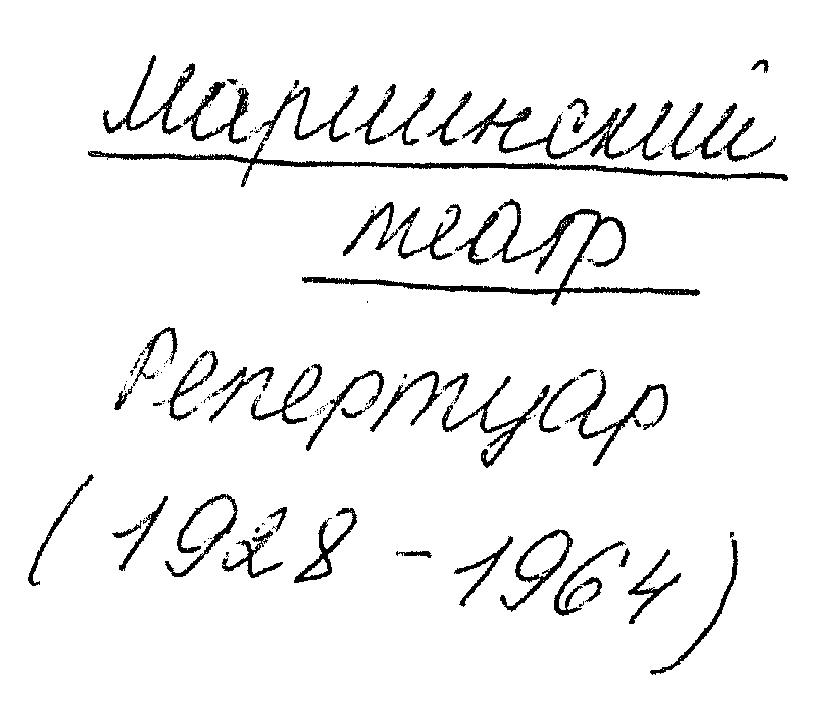 Мариинский
театр
Репертуар
(1928-1964)